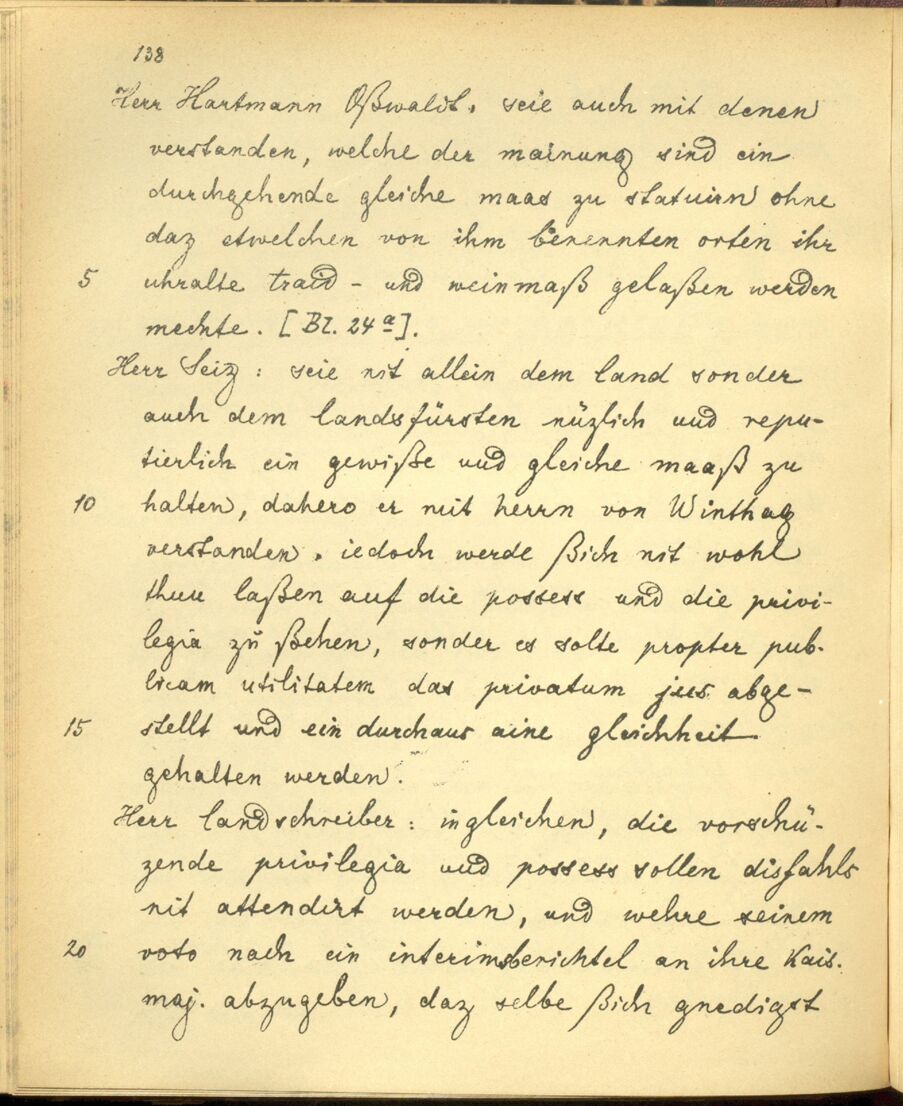 138
Herr Hartmann Oßwaldt. seie auch mit denen
verstanden, welche der mainung sind ein
durchgehende gleiche maas zu statuirn ohne
daz etwelchen von ihm benennten orten ihr
5 uhralte traid- und weinmaß gelaßen werden
mechte. [Bl. 24a].
Herr Seiz: seie nit allein dem land sonder
auch dem landsfürsten nüzlich und repu-
tierlich ein gewiße und gleiche maaß zu
10 halten, dahero er mit herrn von Winthag
verstanden. iedoch werde ßich nit wohl
thuen laßen auf die possess und die privi-
legia zu ßehen, sonder es solte propter pub-
licam utilitatem das privatum jus abge-
15 stellt und ein durchaus aine gleichheit
gehalten werden.
Herr landschreiber: ingleichen, die vorschü-
zende privilegia und possess sollen disfahls
nit attendirt werden, und wehre seinem
20 voto nach ein interimsberichtel an ihre kais.
maj. abzugeben, daz selbe ßich gnedigst